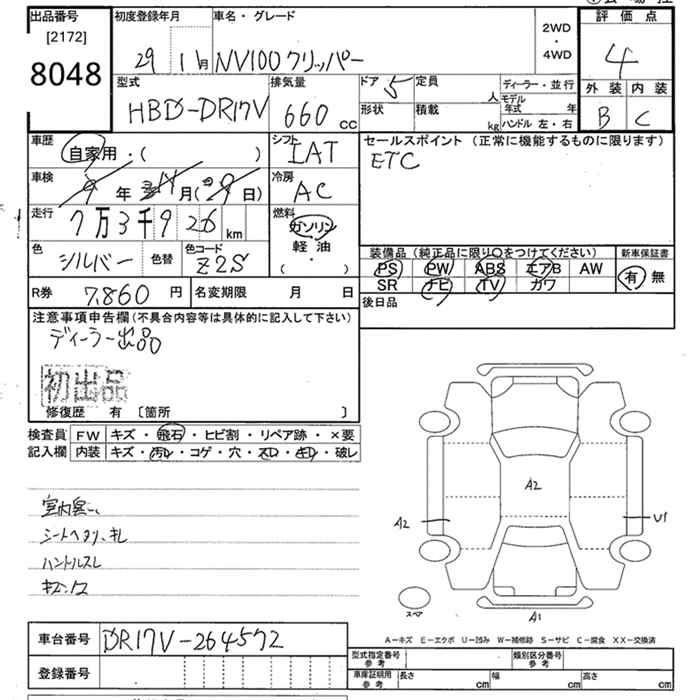 出品番号
[2172]
8048
初度登録年月
29 11月
車名・グレード
NV100クリッパー
2WD
・
4WD
評価点
4
外装 内装
B C
型式
HBD-DR17V
排気量
660 cc
ドア 5
形状
定員 人
積載 kg
ディーラー・並行
モデル年式 年
ハンドル 左・右
車歴
自家用・( )
シフト
IAT
セールスポイント(正常に機能するものに限ります)
ETC
車検
9年 月( 日)
冷房
AC
走行
7万3千926 km
燃料
ガソリン
軽油
( ・ )
色
シルバー
色替
色コード
Z2S
装備品(純正品に限り○をつけてください)
PS PW ABS エアB AW
SR ナビ TV カワ
新車保証書
有 無
R券 7,860 円
名変期限 月 日
後日品
注意事項申告欄(不具合内容等は具体的に記入して下さい)
ディーラー出品
初出品
修復歴 有 〔箇所 〕
検査員記入欄
FW キズ・飛石・ヒビ割・リペア跡・×要
内装 キズ・汚レ・コゲ・穴・スレ・キレ・破レ
シートヘタリ、キレ
ハンドルスレ
A2
A2
U1
スペア
A1
A-キズ E-エクボ U-凹み W-補修跡 S-サビ C-腐食 XX-交換済
車台番号 DR17V-264572
登録番号
型式指定番号参考
類別区分番号参考
車庫証明用参考
長さ cm
幅 cm
高さ cm